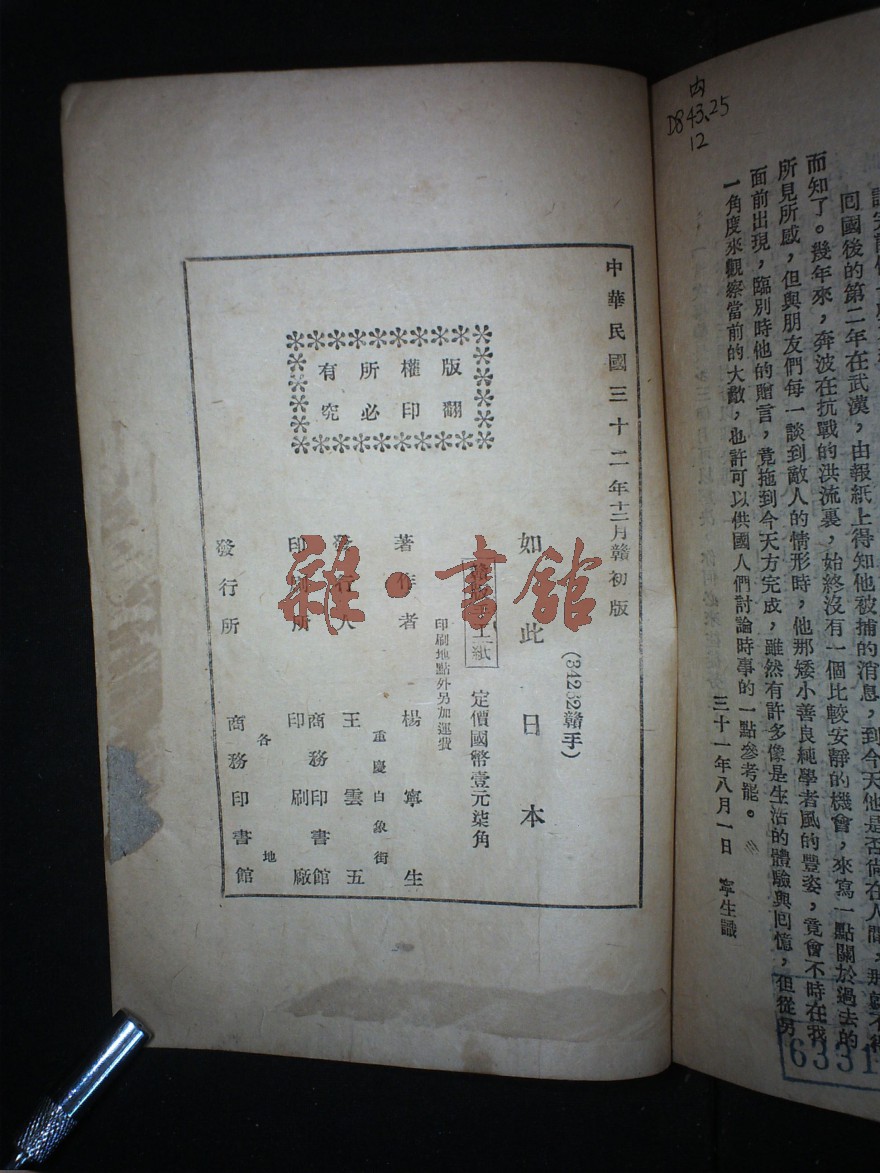 内
D843.25
12
回國後的第二年在武漢，由報紙上得知他被捕的消息，到今天他是否尙在人間，那就不得
而知了。幾年來，奔波在抗戰的洪流裏，始終沒有一個比較安靜的機會，來寫一點關於過去的
所見所感，但與朋友們每一談到敵人的情形時，他那矮小善良純學者風的豐姿，竟會不時在我
面前出現，臨別時他的贈言，竟拖到今天方完成，雖然有許多像是生活的體驗與回憶，但從另
一角度來觀察當前的大敵，也許可以供國人們討論時事的一點參考罷。
三十一年八月一日　寧生識
6331
中華民國三十二年十二月贛初版
版權所有
翻印必究
(34232贛手)
如此日本
定價國幣壹元柒角
印刷地點外另加運費
著作者　楊寧生
重慶白象街
發行人　王雲五
印刷所　商務印書館
印刷廠
發行所　各地
商務印書館
雜·書館